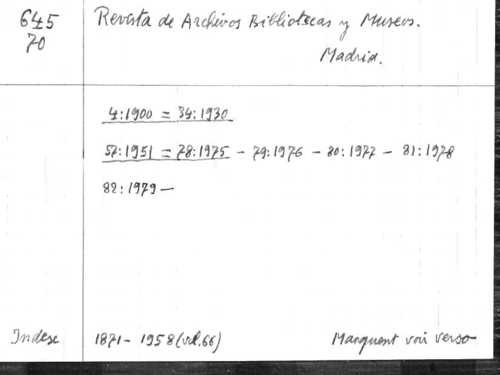 645
70
Revista de Archivos Bibliotecas y Museos.
Madrid.
4:1900 = 34:1930
57:1951 = 78:1975 - 79:1976 - 80:1977 - 81:1978
82:1979 —
Index 1871 - 1958 (vol. 66) Manquent voir verso